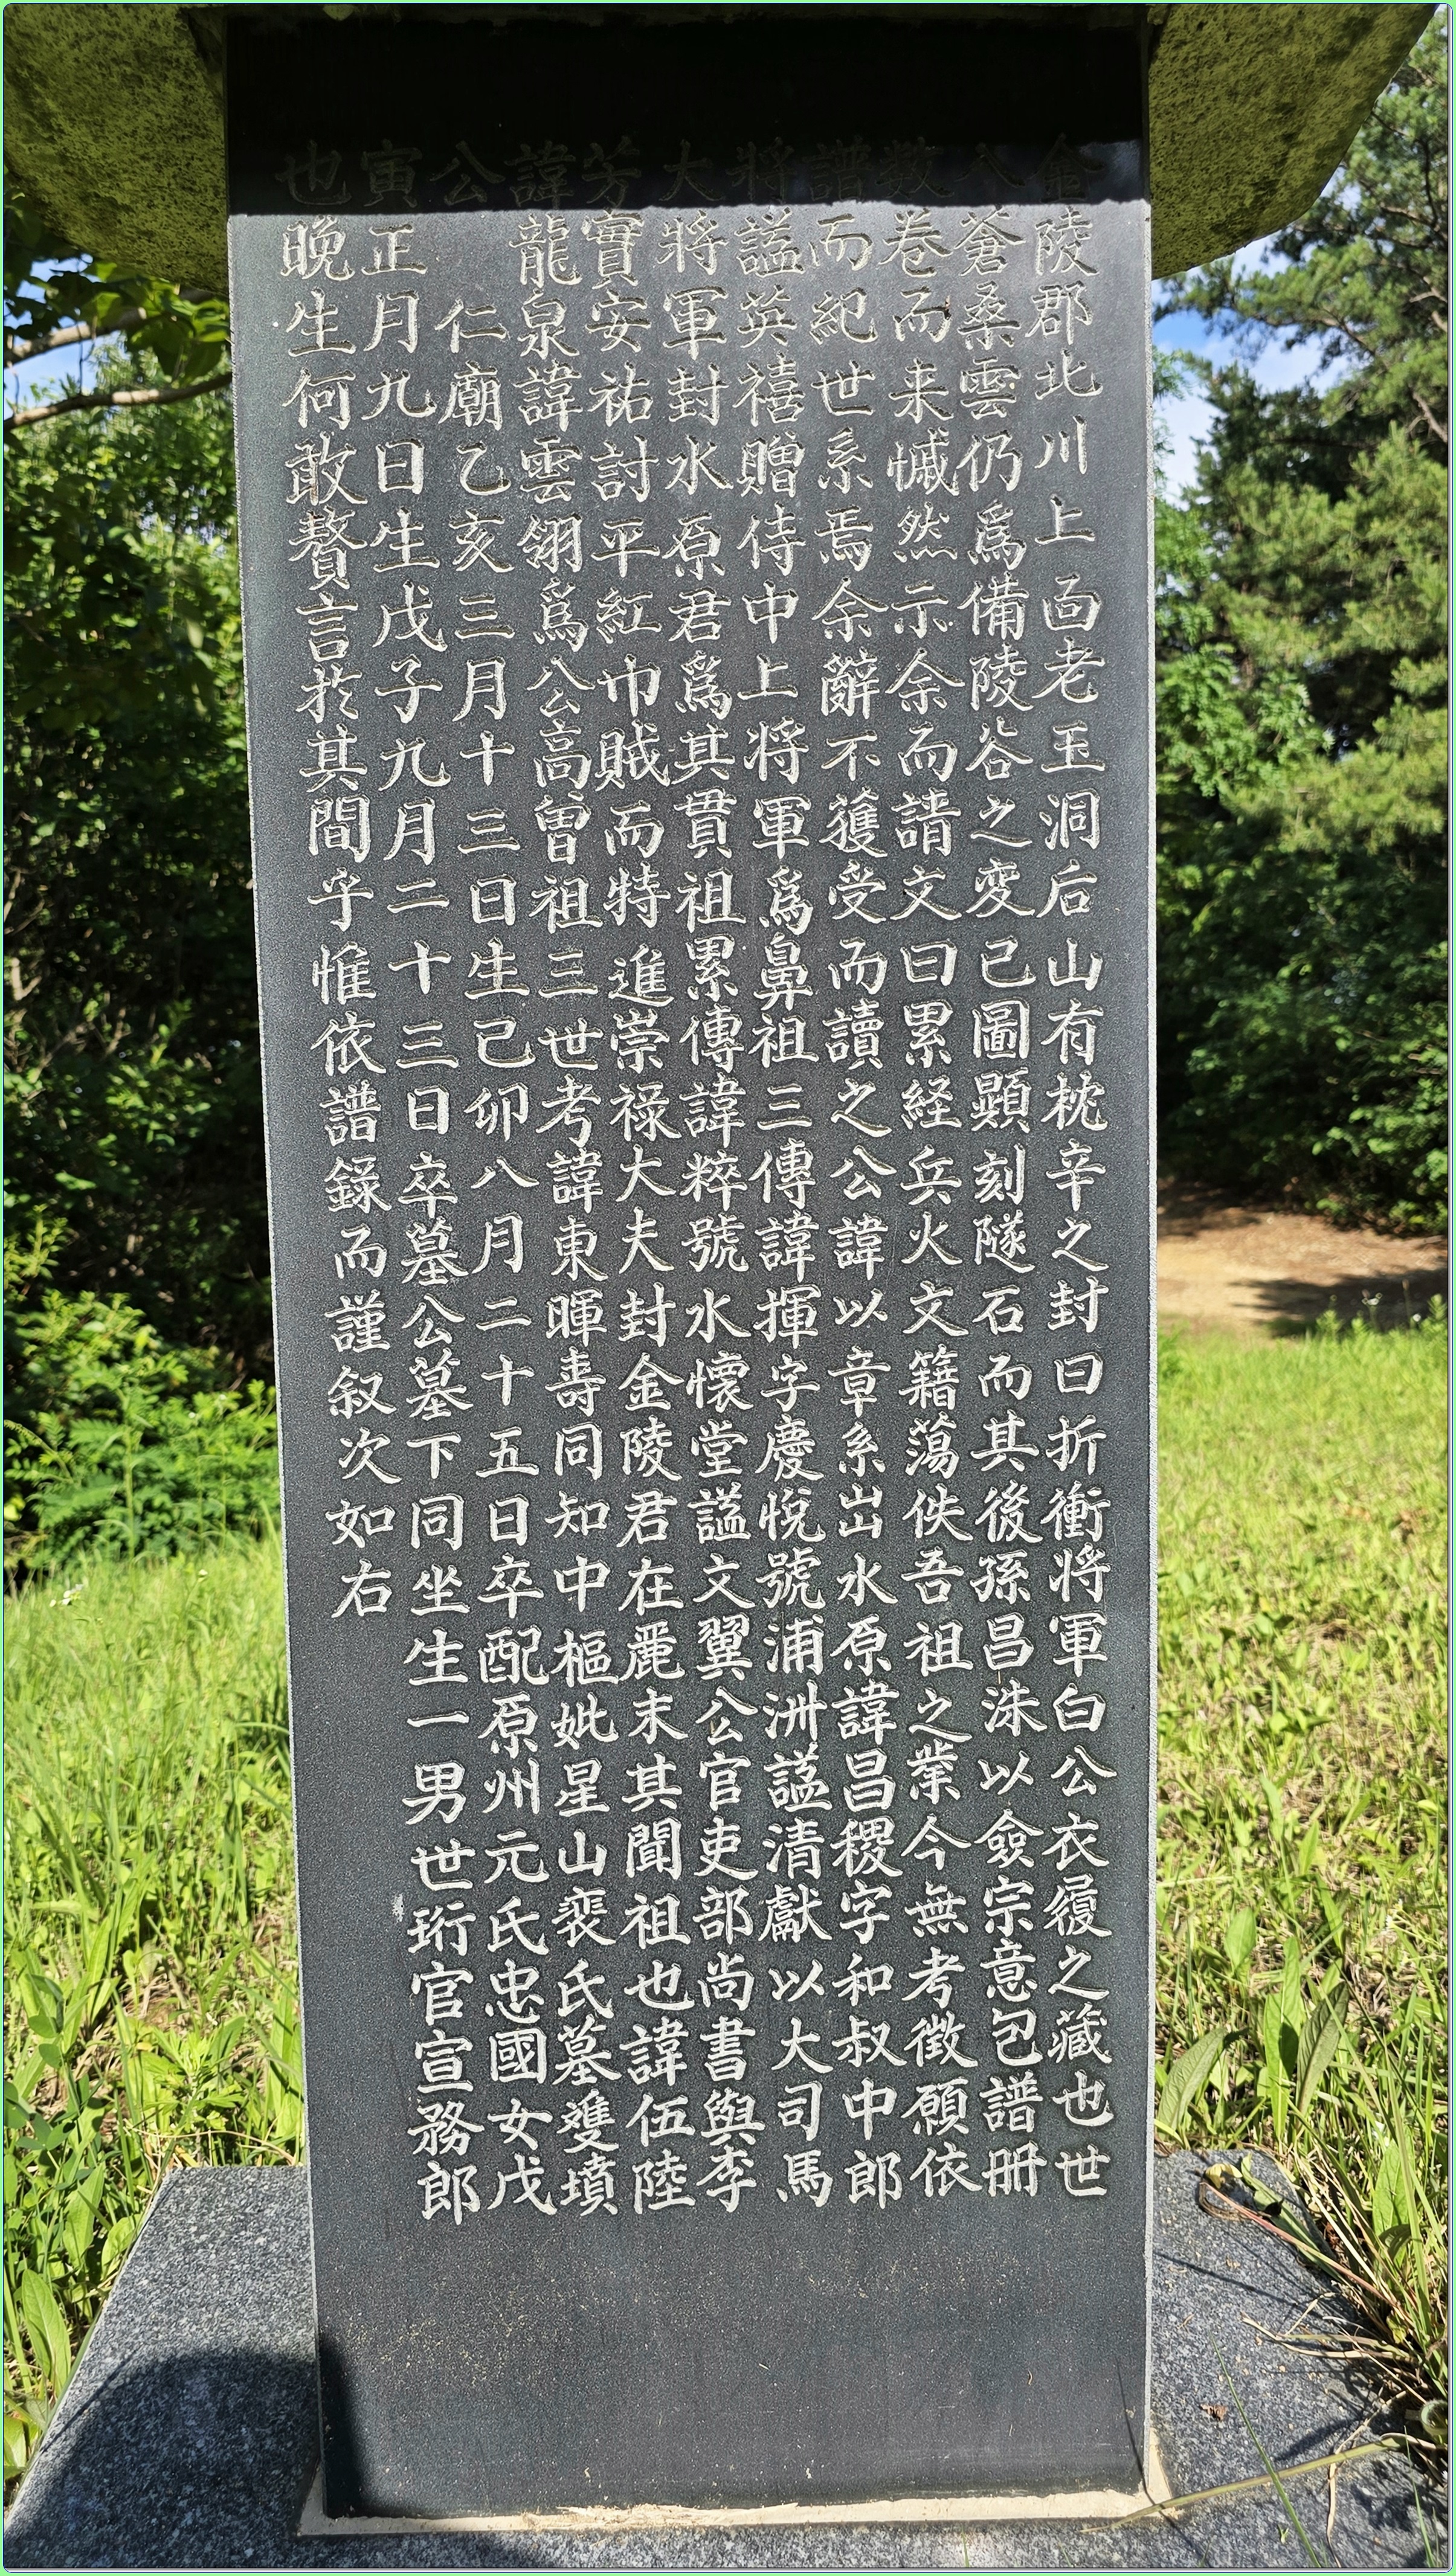 金陵郡北川上面老玉洞后山有枕辛之封曰折衝将軍白公衣履之藏也世
久蒼桑雲仍爲備陵谷之変已圖顕刻隧石而其後孫昌洙以僉宗意包譜冊
数卷而来慽然示余而請文曰累経兵火文籍蕩佚吾祖之業今無考徵願依
譜而紀世系焉余辭不獲受而讀之公諱以章系出水原諱昌稷字和叔中郎
将謚英禧贈侍中上将軍爲鼻祖三傳諱揮字慶悅號浦洲謚清獻以大司馬
大将軍封水原君爲其貫祖累傳諱粹號水懷堂謚文翼公官吏部尚書與李
芳實安祐討平紅巾賊而特進崇禄大夫封金陵君在麗末其聞祖也諱伍陸
諱龍泉諱雲翎爲公高曽祖三世考諱東暉壽同知中樞妣星山裵氏墓雙墳
公仁廟乙亥三月十三日生己卯八月二十五日卒配原州元氏忠國女戊
寅正月九日生戊子九月二十三日卒墓公墓下同坐生一男世珩官宣務郎
也晚生何敢贅言於其間乎惟依譜錄而謹叙次如右